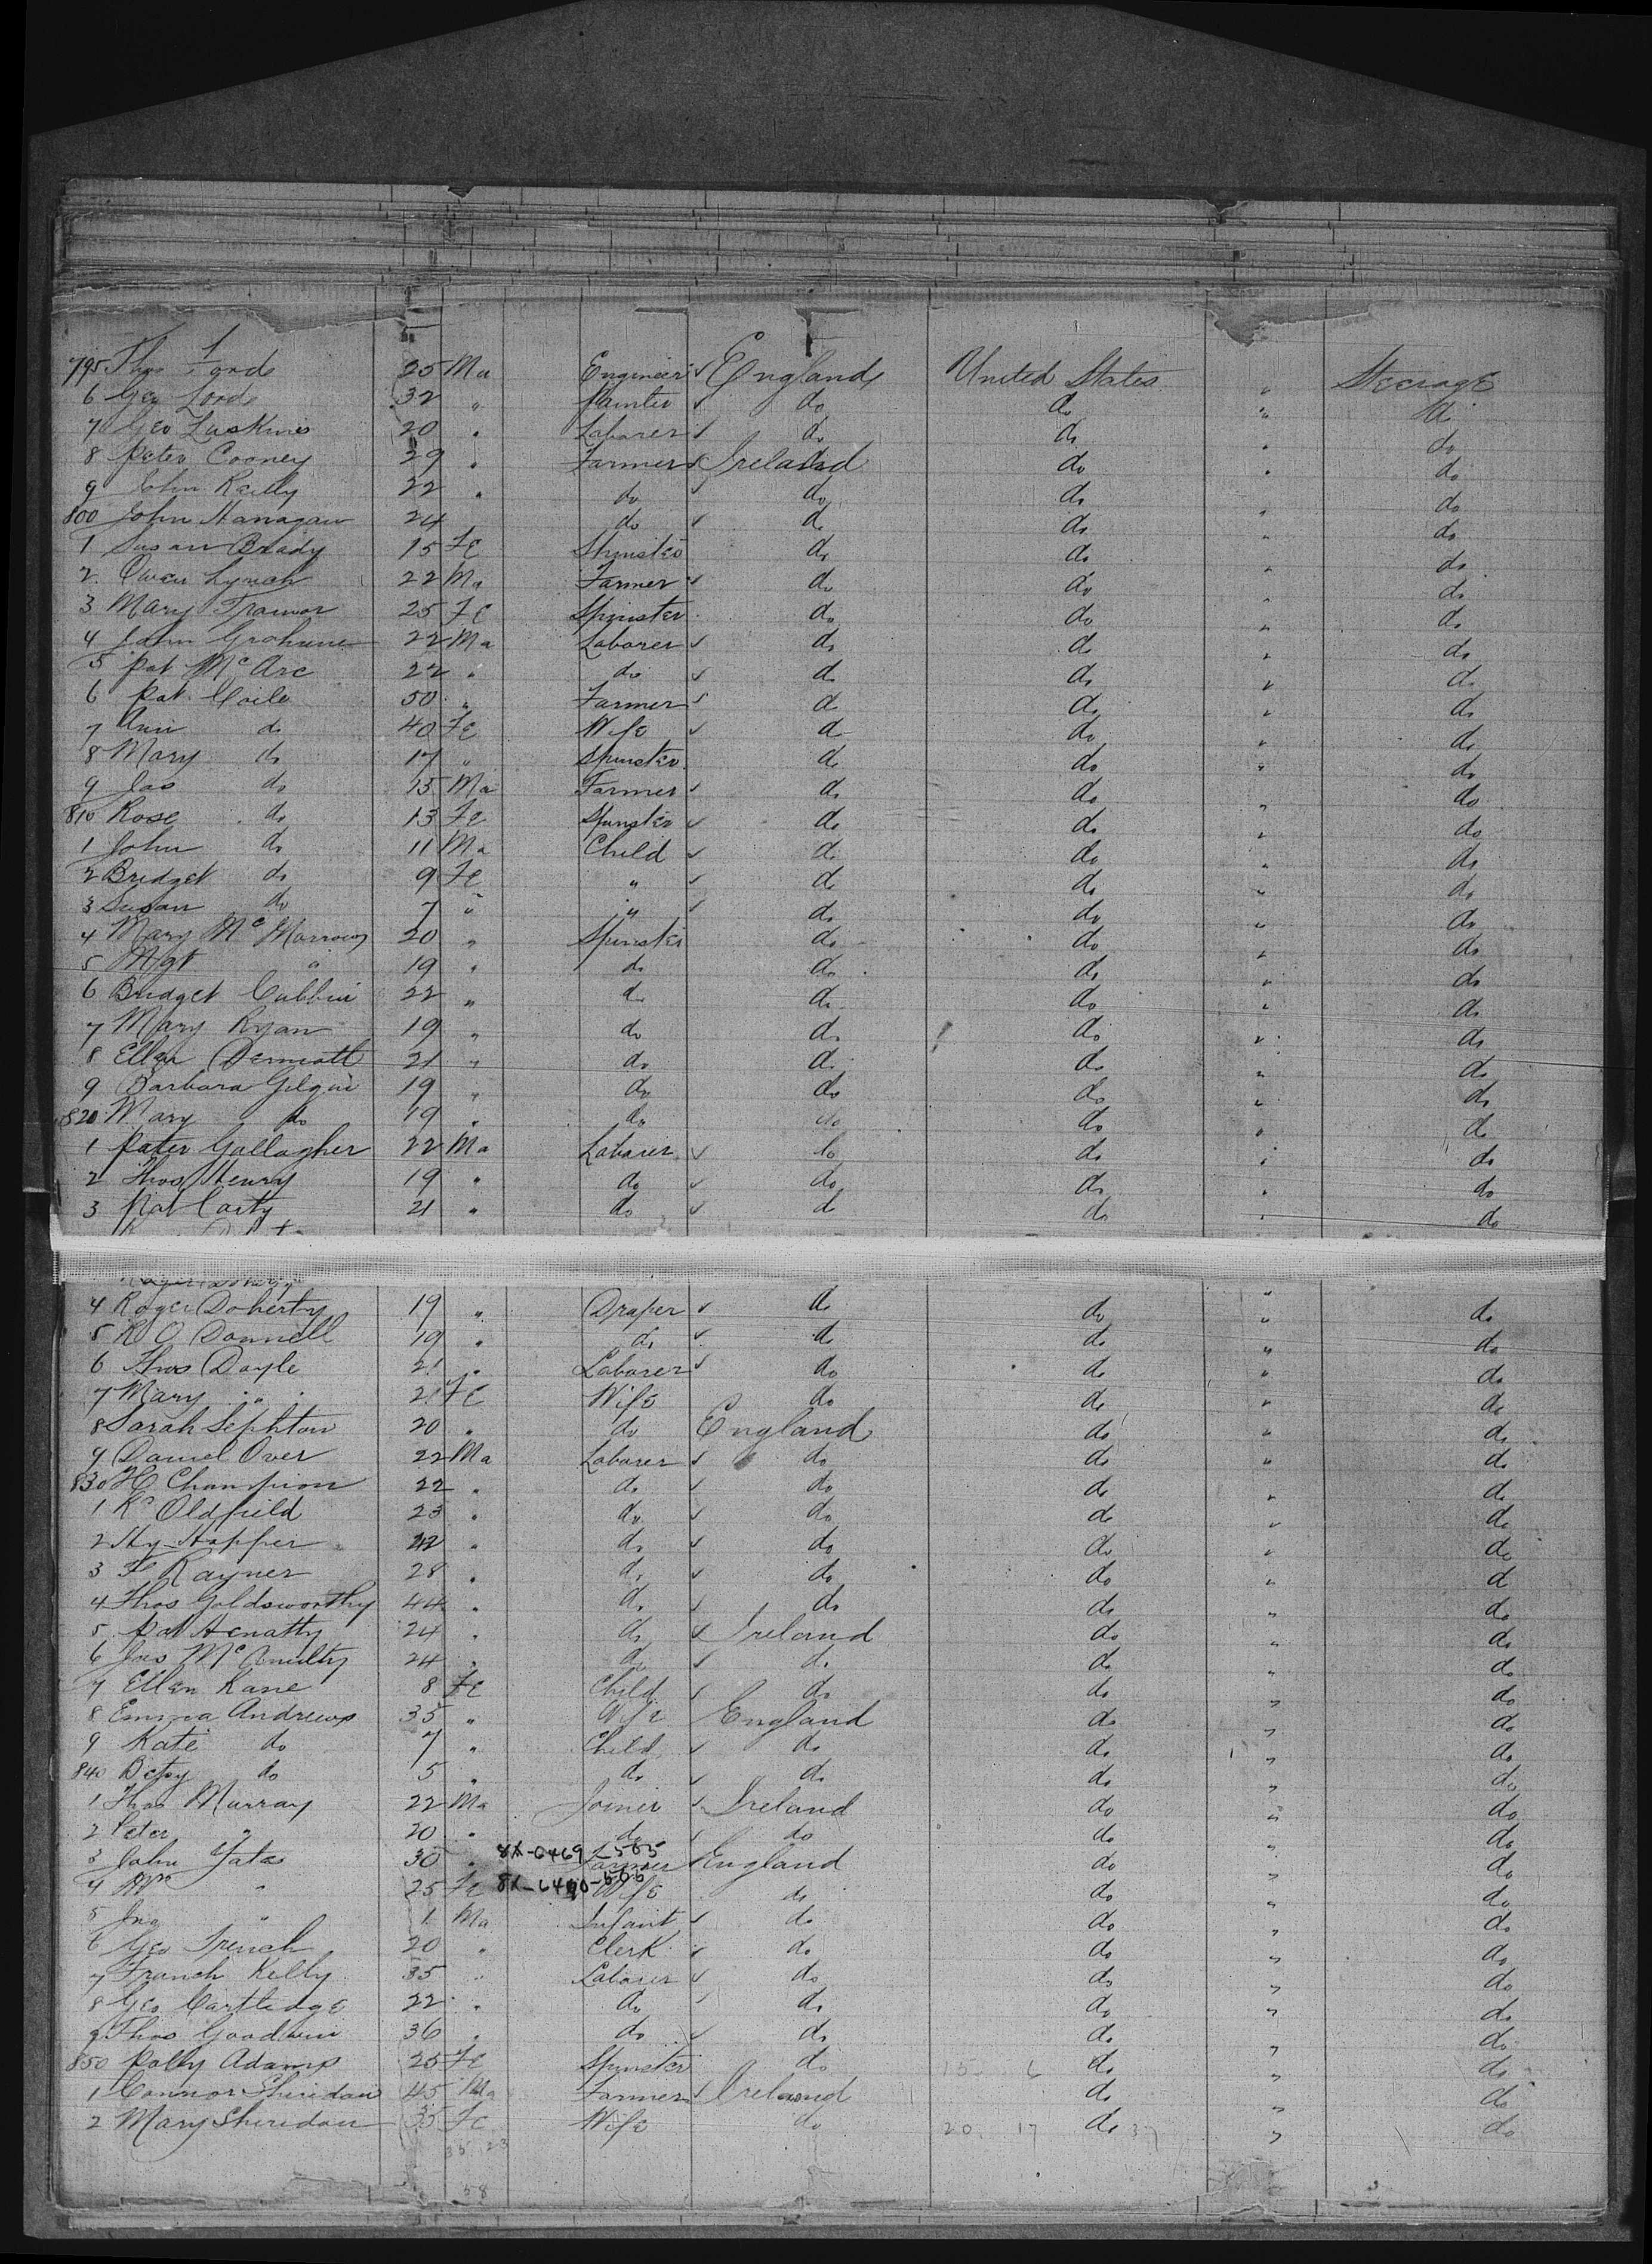 795 Thos Lord 25 Ma Engineer ✓ England United States " Steerage
6 Geo Lord 32 " Painter ✓ do do " do
7 Geo Luskins 20 " Laborer ✓ do do " do
8 Peter Cooney 29 " Farmer ✓ Ireland do " do
9 John Reilly 22 " do ✓ do do " do
800 John Hanagan 24 do ✓ do do " do
1 Susan Brady 15 Fe Spinster do do " do
2 Owen Lynch 22 Ma Farmer ✓ do do " do
3 Mary Trainor 25 Fe Spinster do do " do
4 John Grahame 22 Ma Laborer ✓ do do " do
5 Pat McArc 22 " do ✓ do do " do
6 Pat Coile 50 " Farmer ✓ do do " do
7 Ann do 40 Fe Wife ✓ do do " do
8 Mary do 17 " Spinster do do " do
9 Jas do 15 Ma Farmer ✓ do do " do
810 Rose do 13 Fe Spinster ✓ do do " do
1 John do 11 Ma Child ✓ do do " do
2 Bridget do 9 Fe " ✓ do do " do
3 Susan do 7 " " ✓ do do " do
4 Mary McMorrow 20 " Spinster do do " do
5 Mgt " 19 " do do do " do
6 Bridget Cubbin 22 " do do do " do
7 Mary Ryan 19 " do do do " do
8 Ellen Dermott 21 " do do do " do
9 Barbara Gilgin 19 " do do do " do
820 Mary do 19 " do do do " do
1 Peter Gallagher 22 Ma Laborer ✓ do do " do
2 Thos Henry 19 " do ✓ do do " do
3 Pat Carty 21 " do ✓ do do " do
4 Roger Doherty 19 " Draper ✓ do do " do
5 R O Donnell 19 " do ✓ do do " do
6 Thos Doyle 21 " Laborer ✓ do do " do
7 Mary " 21 Fe Wife do do " do
8 Sarah Sephton 20 " do England do " do
9 Daniel Over 22 Ma Laborer ✓ do do " do
830 H Champion 22 " do ✓ do do " do
1 Rd Oldfield 23 " do ✓ do do " do
2 Hy Hopper 22 " do ✓ do do " do
3 F Rayner 28 " do ✓ do do " do
4 Thos Goldsworthy 44 " do ✓ do do " do
5 Pat Henatty 24 " do ✓ Ireland do " do
6 Jas McAnulty 24 " do ✓ do do " do
7 Ellen Kane 8 Fe Child ✓ do do " do
8 Emma Andrews 35 " Wife England do " do
9 Kate do 7 " Child ✓ do do " do
840 Betsy do 5 " do ✓ do do " do
1 Thos Murray 22 Ma Joiner ✓ Ireland do " do
2 Peter " 20 " do ✓ do do " do
3 John Yate 30 " Farmer England do " do
4 " 25 Fe Wife do do " do
5 Jno " 1 Ma Infant ✓ do do " do
6 Geo French 20 " Clerk ✓ do do " do
7 Franch Kelly 35 " Laborer ✓ do do " do
8 Geo Cartledge 22 " do ✓ do do " do
9 Thos Goodwin 36 " do ✓ do do " do
850 Polly Adams 25 Fe Spinster do do " do
1 Connor Sheridan 45 Ma Farmer ✓ Ireland do " do
2 Mary Sheridan 35 Fe Wife do 20 17 do 37 " do
35 23
58